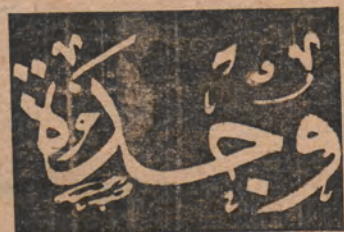 وجدة